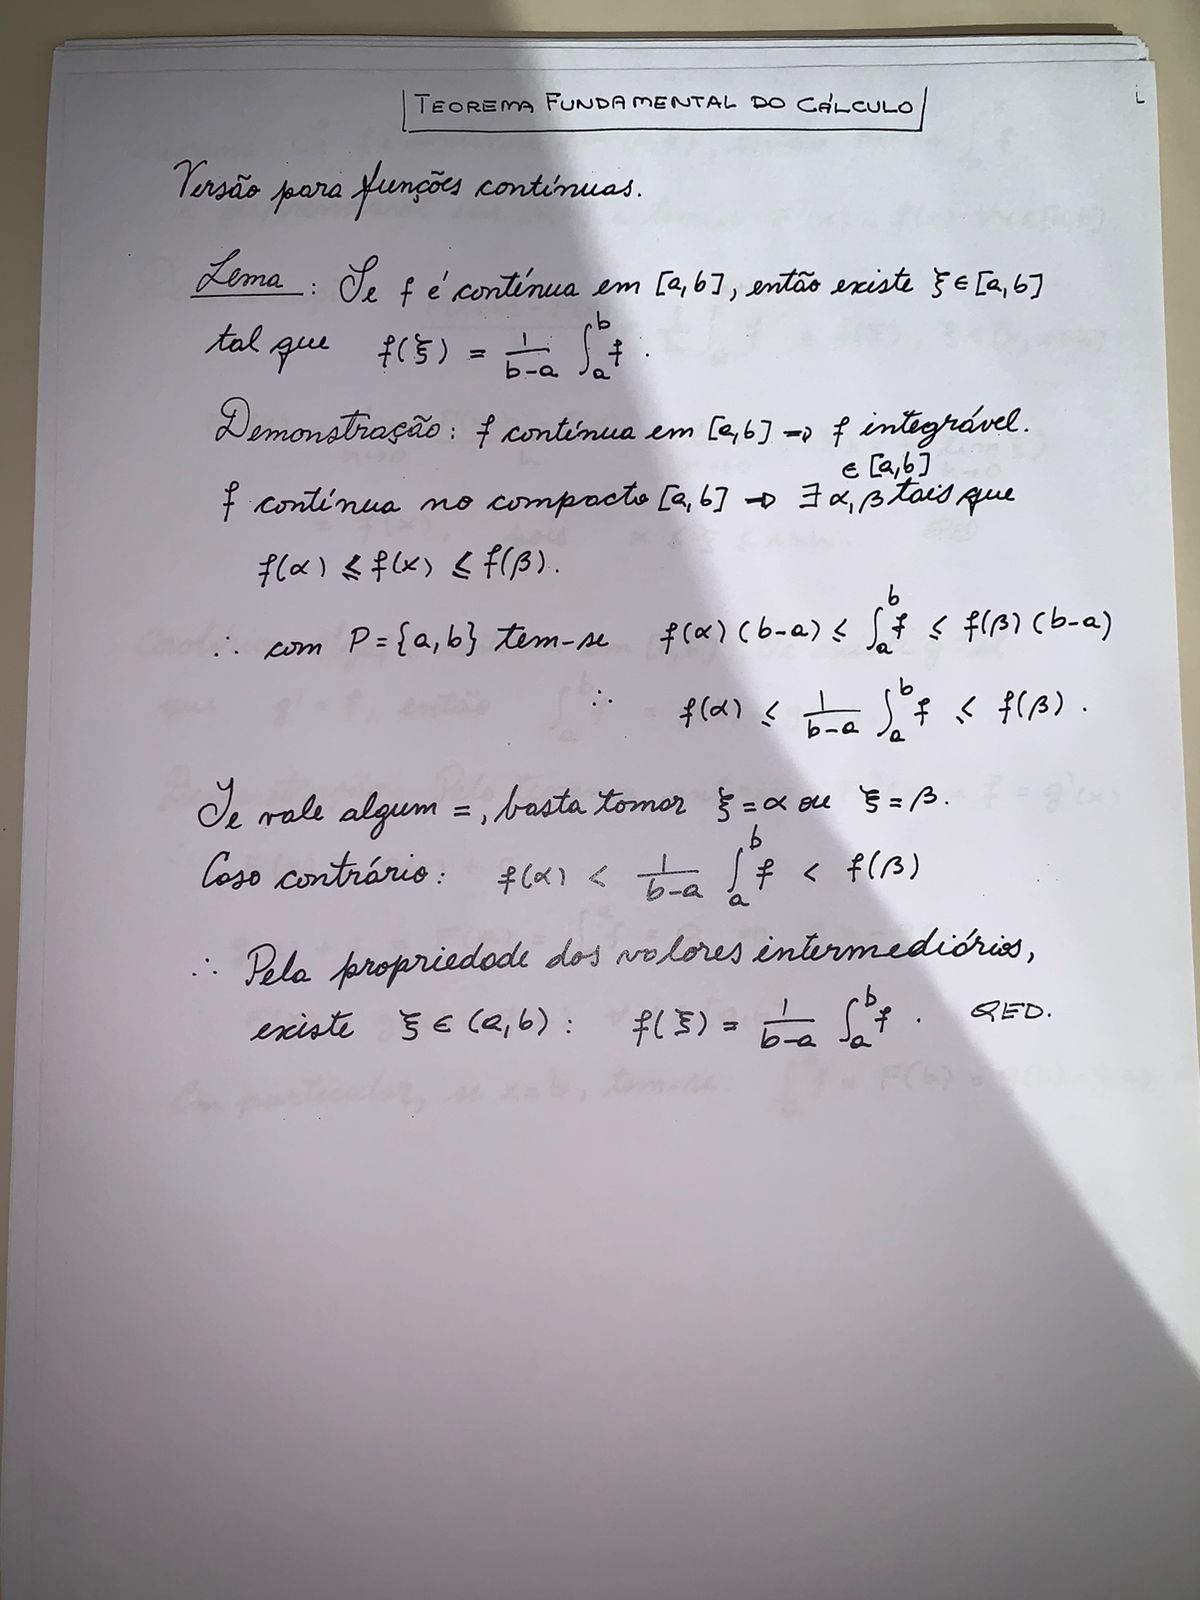 TEOREMA FUNDAMENTAL DO CÁLCULO
Versão para funções contínuas.
Lema : Se f é contínua em [a,b], então existe ξ ∈ [a,b]
tal que f(ξ) = 1/(b-a) ∫_a^b f.
Demonstração: f contínua em [a,b] ⇒ f integrável.
∈ [a,b]
f contínua no compacto [a,b] ⇒ ∃ α, β tais que
f(α) ≤ f(x) ≤ f(β).
∴ com P = {a,b} tem-se f(α)(b-a) ≤ ∫_a^b f ≤ f(β)(b-a)
∴ f(α) ≤ 1/(b-a) ∫_a^b f ≤ f(β).
Se vale algum =, basta tomar ξ = α ou ξ = β.
Caso contrário: f(α) < 1/(b-a) ∫_a^b f < f(β)
∴ Pela propriedade dos valores intermediários,
existe ξ ∈ (a,b): f(ξ) = 1/(b-a) ∫_a^b f. QED.